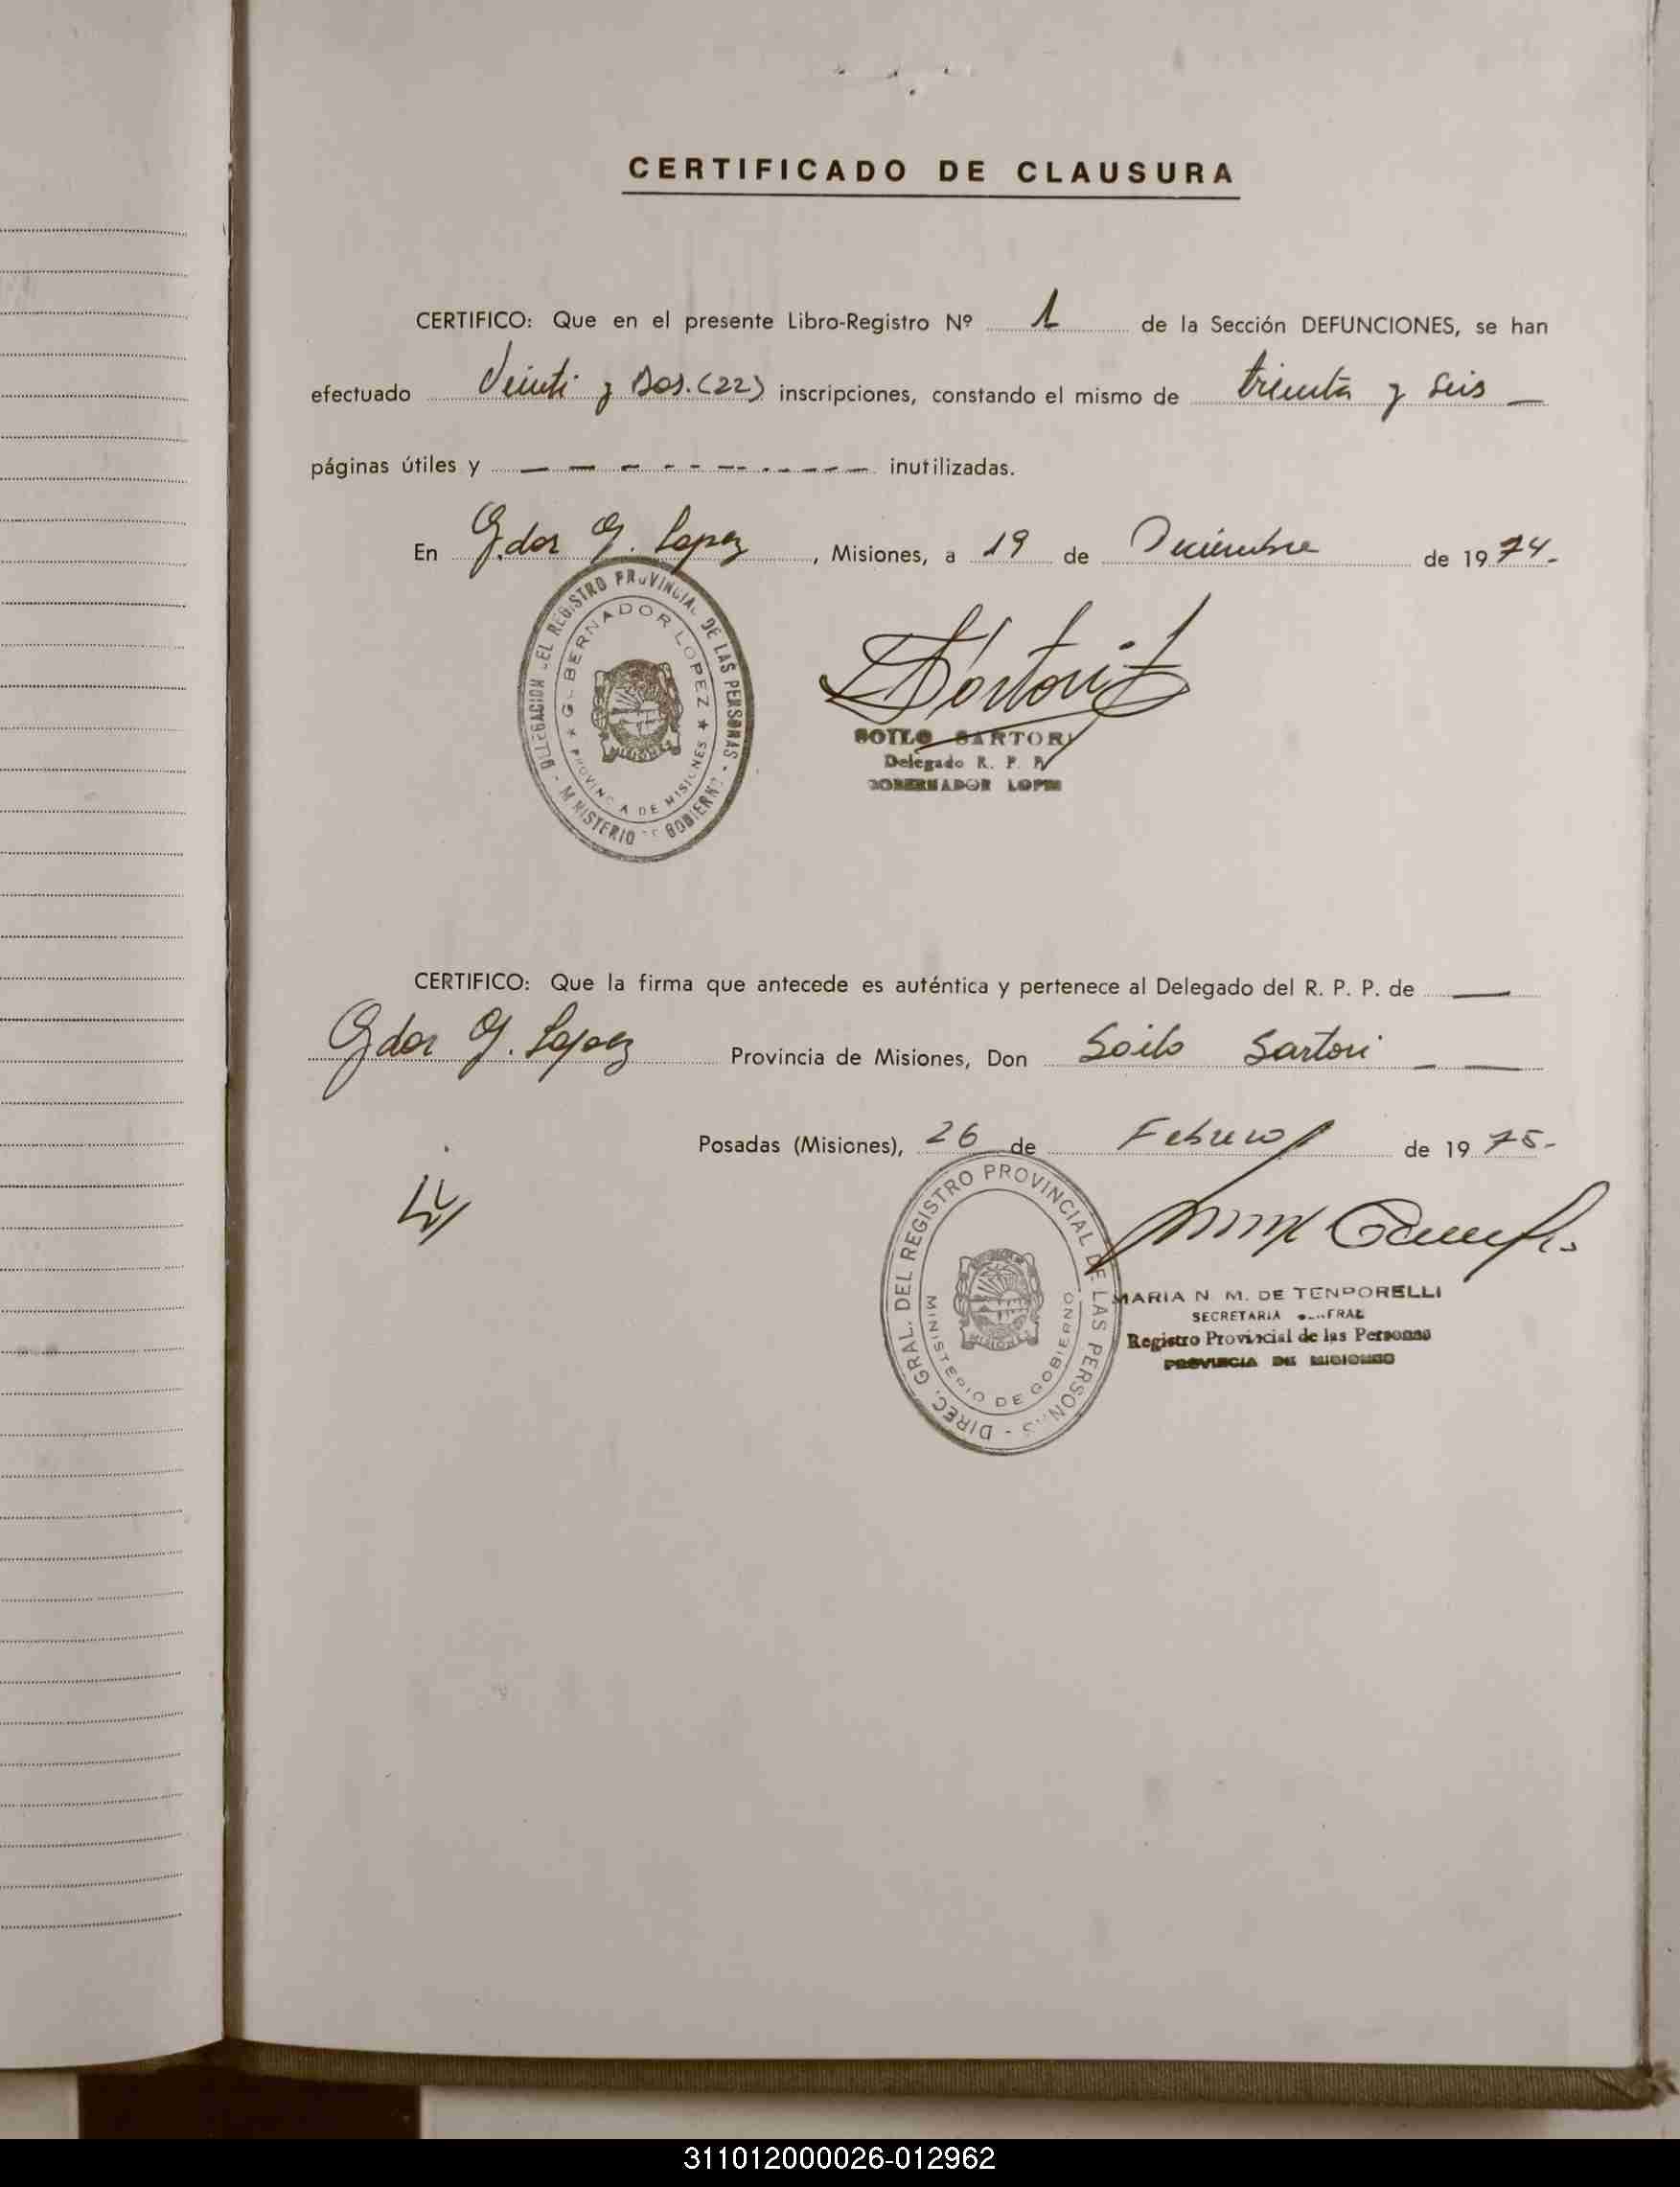 CERTIFICADO DE CLAUSURA
CERTIFICO: Que en el presente Libro-Registro Nº 1 de la Sección DEFUNCIONES, se han
efectuado Veinti y Dos. (22) inscripciones, constando el mismo de treinta y seis
páginas útiles y inutilizadas.
En G.dor G. Lopez, Misiones, a 19 de Diciembre de 1974.-
DELEGACION DEL REGISTRO PROVINCIAL DE LAS PERSONAS - MINISTERIO DE GOBIERNO -
GOBERNADOR LOPEZ * PROVINCIA DE MISIONES *
Sartori
SOILO SARTORI
Delegado R. P. P.
GOBERNADOR LOPEZ
CERTIFICO: Que la firma que antecede es auténtica y pertenece al Delegado del R. P. P. de
Gdor G. Lopez Provincia de Misiones, Don Soilo Sartori
Posadas (Misiones), 26 de Febrero de 1975.-
DIREC. GRAL. DEL REGISTRO PROVINCIAL DE LAS PERSONAS -
MINISTERIO DE GOBIERNO
MARIA N. M. DE TENPORELLI
SECRETARIA
Registro Provincial de las Personas
PROVINCIA DE MISIONES
311012000026-012962